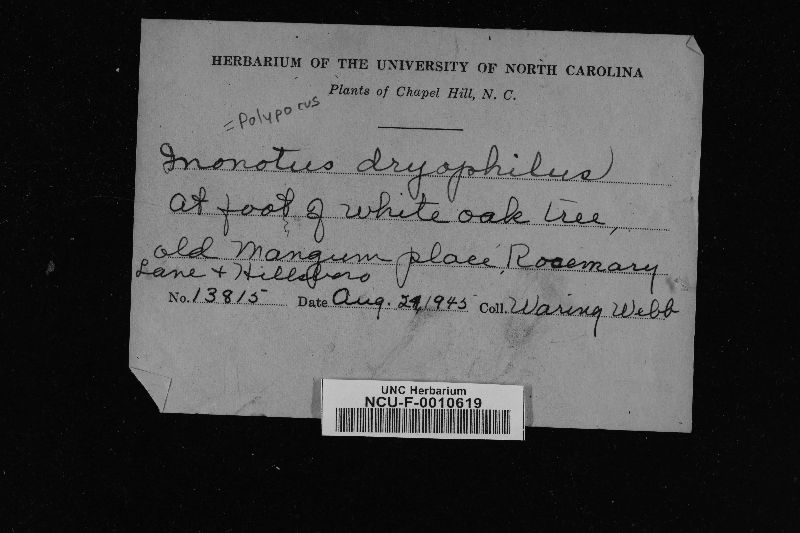 HERBARIUM OF THE UNIVERSITY OF NORTH CAROLINA
Plants of Chapel Hill, N. C.
= Polyporus
Inonotus dryophilus
at foot of white oak tree,
old Mangum place, Rosemary
Lane + Hillsboro
No. 13815 Date Aug. 29, 1945 Coll. Waring Webb
UNC Herbarium
NCU-F-0010619